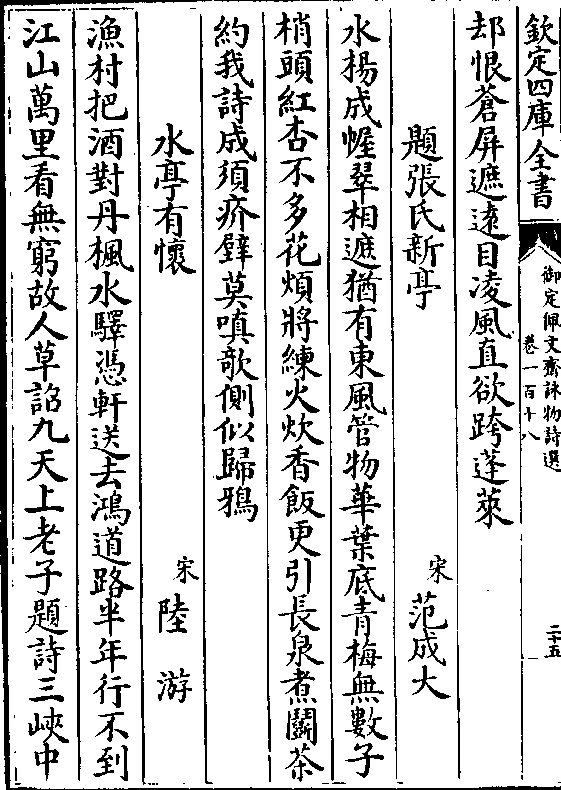 欽定四庫全書
御定佩文齋詠物詩選
卷一百十八
二十五
却恨蒼屏遮遠目凌風直欲跨蓬萊
題張氏新亭
宋
范成大
水楊成幄翠相遮猶有東風管物華葉底青梅無數子
梢頭紅杏不多花煩將練火炊香飯更引長泉煮鬬茶
約我詩成須疥壁莫嗔欹側似歸鴉
水亭有懷
宋
陸游
漁村把酒對丹楓水驛憑軒送去鴻道路半年行不到
江山萬里看無窮故人草詔九天上老子題詩三峽中